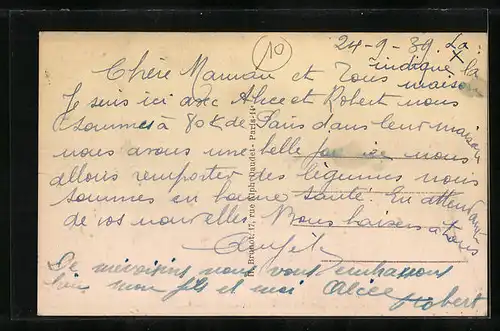 10
24-9-39. La
x indique la
Chère Maman et Tous maison
Je suis ici avec Alice et Robert nous
sommes à 80 k de Paris dans leur maison
nous avons une belle nous
allons remporter des légumes nous
sommes en bonne santé. En attendant
de vos nouvelles. Bons baisers à tous
nous vous embrassons
bien mon fils et moi Alice
Robert
Brunot, 17, rue Paris-1